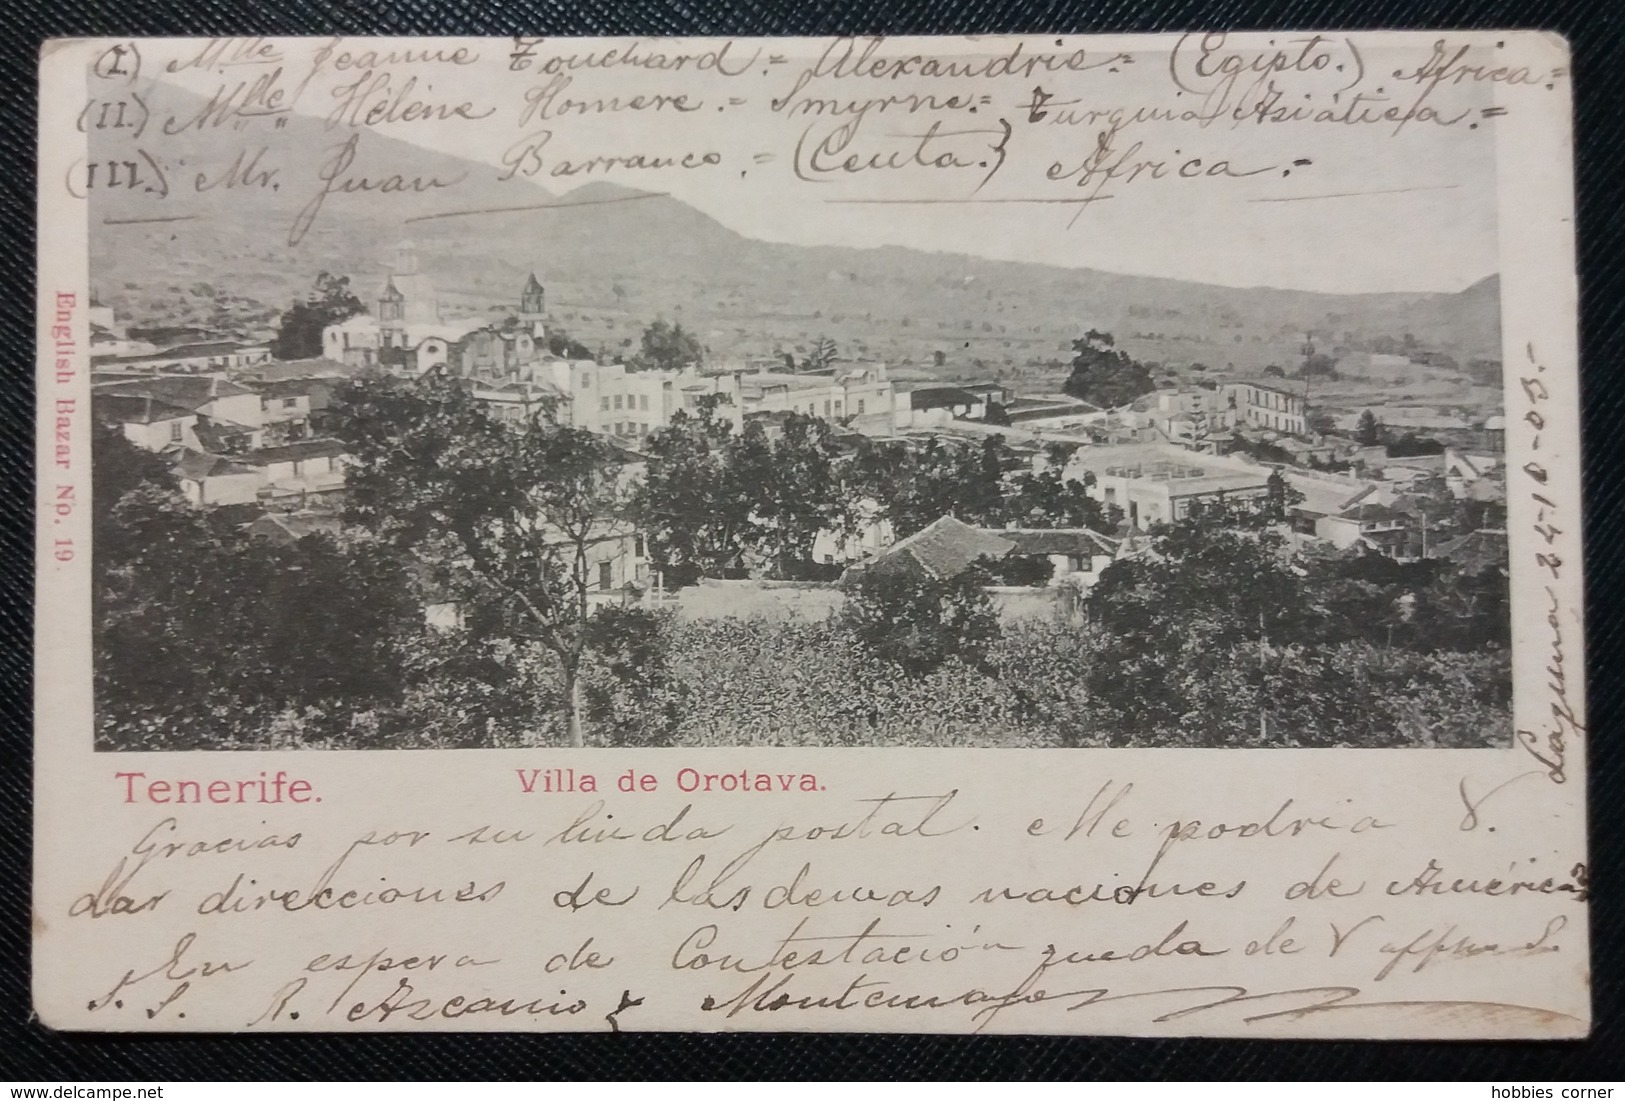 (I.) Mlle Jeanne Touchard.= Alexandrie.= (Egipto.) Africa.=
(II.) Mlle " Hélène Homere.= Smyrne.= Turquia Asiática.=
(III.) Mr. Juan Barranco.= (Ceuta.) Africa.-
English Bazar No. 19.
Laguna 24-10-03.-
Tenerife. Villa de Orotava.
Gracias por su linda postal. Me podria V.
dar direcciones de las demas naciones de América?
En espera de Contestación queda de V affmo S.
S. S. R. Ascanio y Montemayor
hobbies corner